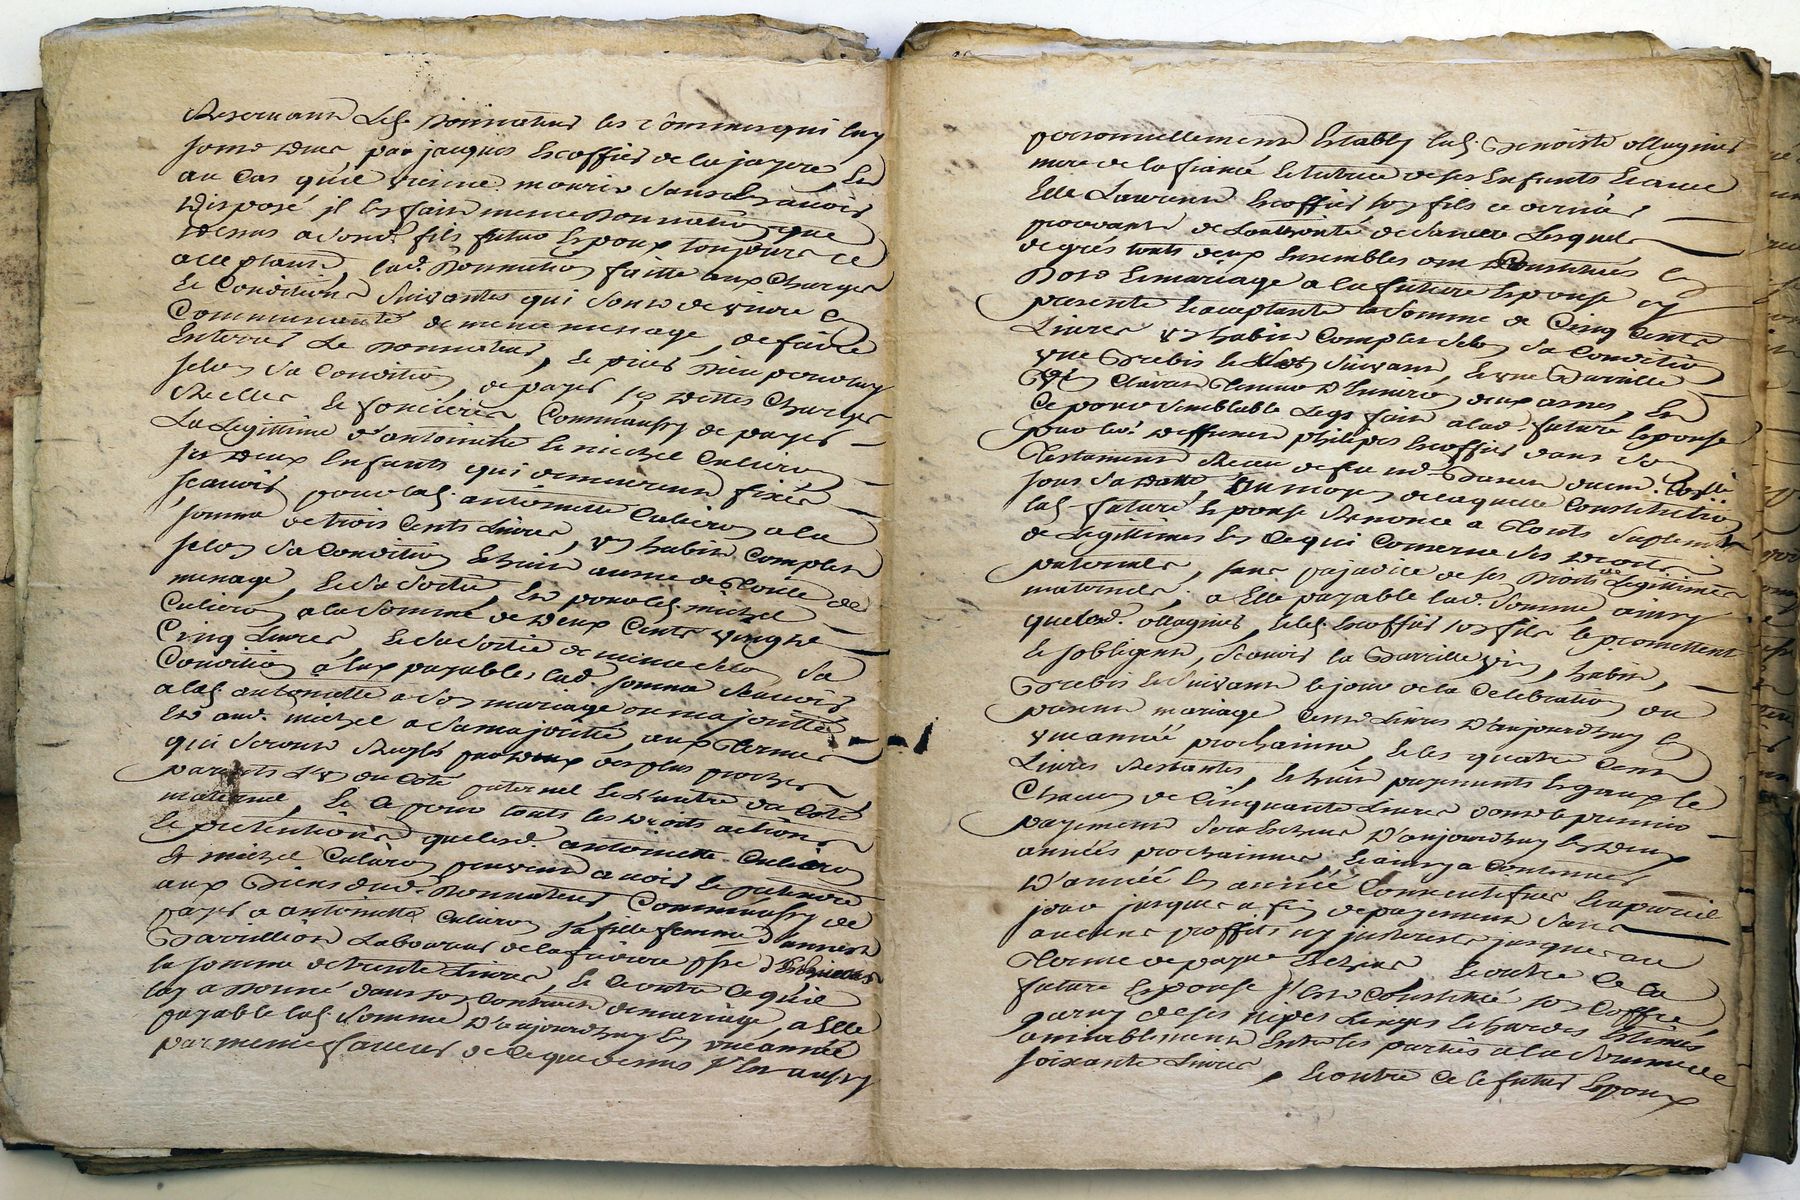 Reservant led. donnateur les sommes qui luy
sont dues par jacques Escoffier de la jayere, Et
au Cas qu'il vienne mourir sans En avoir
Disposé jl En fait meme donnation que
dessus a sond. fils futur Epoux toujours ce
acceptant, lad. donnation faitte aux Charges
Et Conditions suivantes qui sont de vivre En
Communauté de meme menage, de faire
Enterrer Le donnateur, Et prier Dieu pour luy
selon sa Condition, de payer ses dettes Charges
Reelles Et foncieres Comm'aussy de payer
La Legittime d'antoinette Et michel
ses deux Enfants qui demeurent fixés
scavoir pour lad. antoinette a la
somme de trois Cents Livres, un habit Complet
selon sa Condition Et huit aunes de toille de
menage, Et sa sortie, Et pour led. michel
a la somme de deux Cents vingt
Cinq Livres, Et sa sortie de meme selon sa
Condition a Eux payables lad. somme scavoir
a lad. antoinette a son mariage ou majoritté
Et aud. michel a sa majorité, aux termes
qui seront Reglés par deux des plus proches
parents L'un du Coté paternel Et L'autre du Coté
maternel, Et Ce pour touts les droits actions
Et pretentions que lesd. antoinette
Et michel peuvent avoir Et pretendre
aux Biens dud. donnateur, Comm'aussy de
payer a antoinette sa fille femme d'annet
Laboureur de la
la somme de trente Livres, Et Ce outre Ce qu'il
luy a donné dans son Contract de mariage, a Elle
payable lad. somme D'aujourdhuy En une année
par meme faveur de Ce que dessus s'Est aussy
personnellement Etably lad. Benoiste ollagnier
mere de la fiancé Et tutrice de ses Enfants Et avec
Elle Laurent Escoffier son fils ce dernier
provenant de L'authorité de sa mere Lesquels
de grés touts deux Ensembles ont Constitués En
Dote Et mariage a la future Epouse Cy
presente Et acceptante la somme de Cinq Cents
Livres un habit Complet selon sa Condition
une Brebis Et son suivant, Et une
deux asnes, Et
Ce pour semblable Legs fait a lad. future Epouse
par led. deffunt philipes Escoffier dans son
Testament
sous sa datte Au moyen de laquelle Constitution
lad. future Epouse Renonce a touts suplement
de Legittimes En Ce qui Concerne ses droits
paternels, sans prejudice de ses Droits de Legittimes
maternels, a Elle payable lad. somme, ainsy
que lad. ollagnier, Et led. Escoffier son fils le promettent
Et s'obligent, scavoir la vin, habit,
Brebis Et suivant le jour de la Celebration du
present mariage Cent Livres D'aujourdhuy En
une année prochainne, Et les quatre Cent
Livres Restantes, En huit payements Egaux Et
Chacun de Cinquante Livres dont le premier
payement sera Echeu D'aujourdhuy En deux
années prochainnes Et ainsy a Continuer
D'année En année Consecutifves Et a pareil
jour jusques a fin de payement sans
aucuns proffits ny jnterests jusques au
terme de payement Echeu, Et outre Ce la
future Epouse s'Est Constitué son Coffre
garny de ses nippes Linges Et hardes Estimés
amiablement Entre les parties a la somme de
soixante Livres, Et outre Ce le futur Epoux